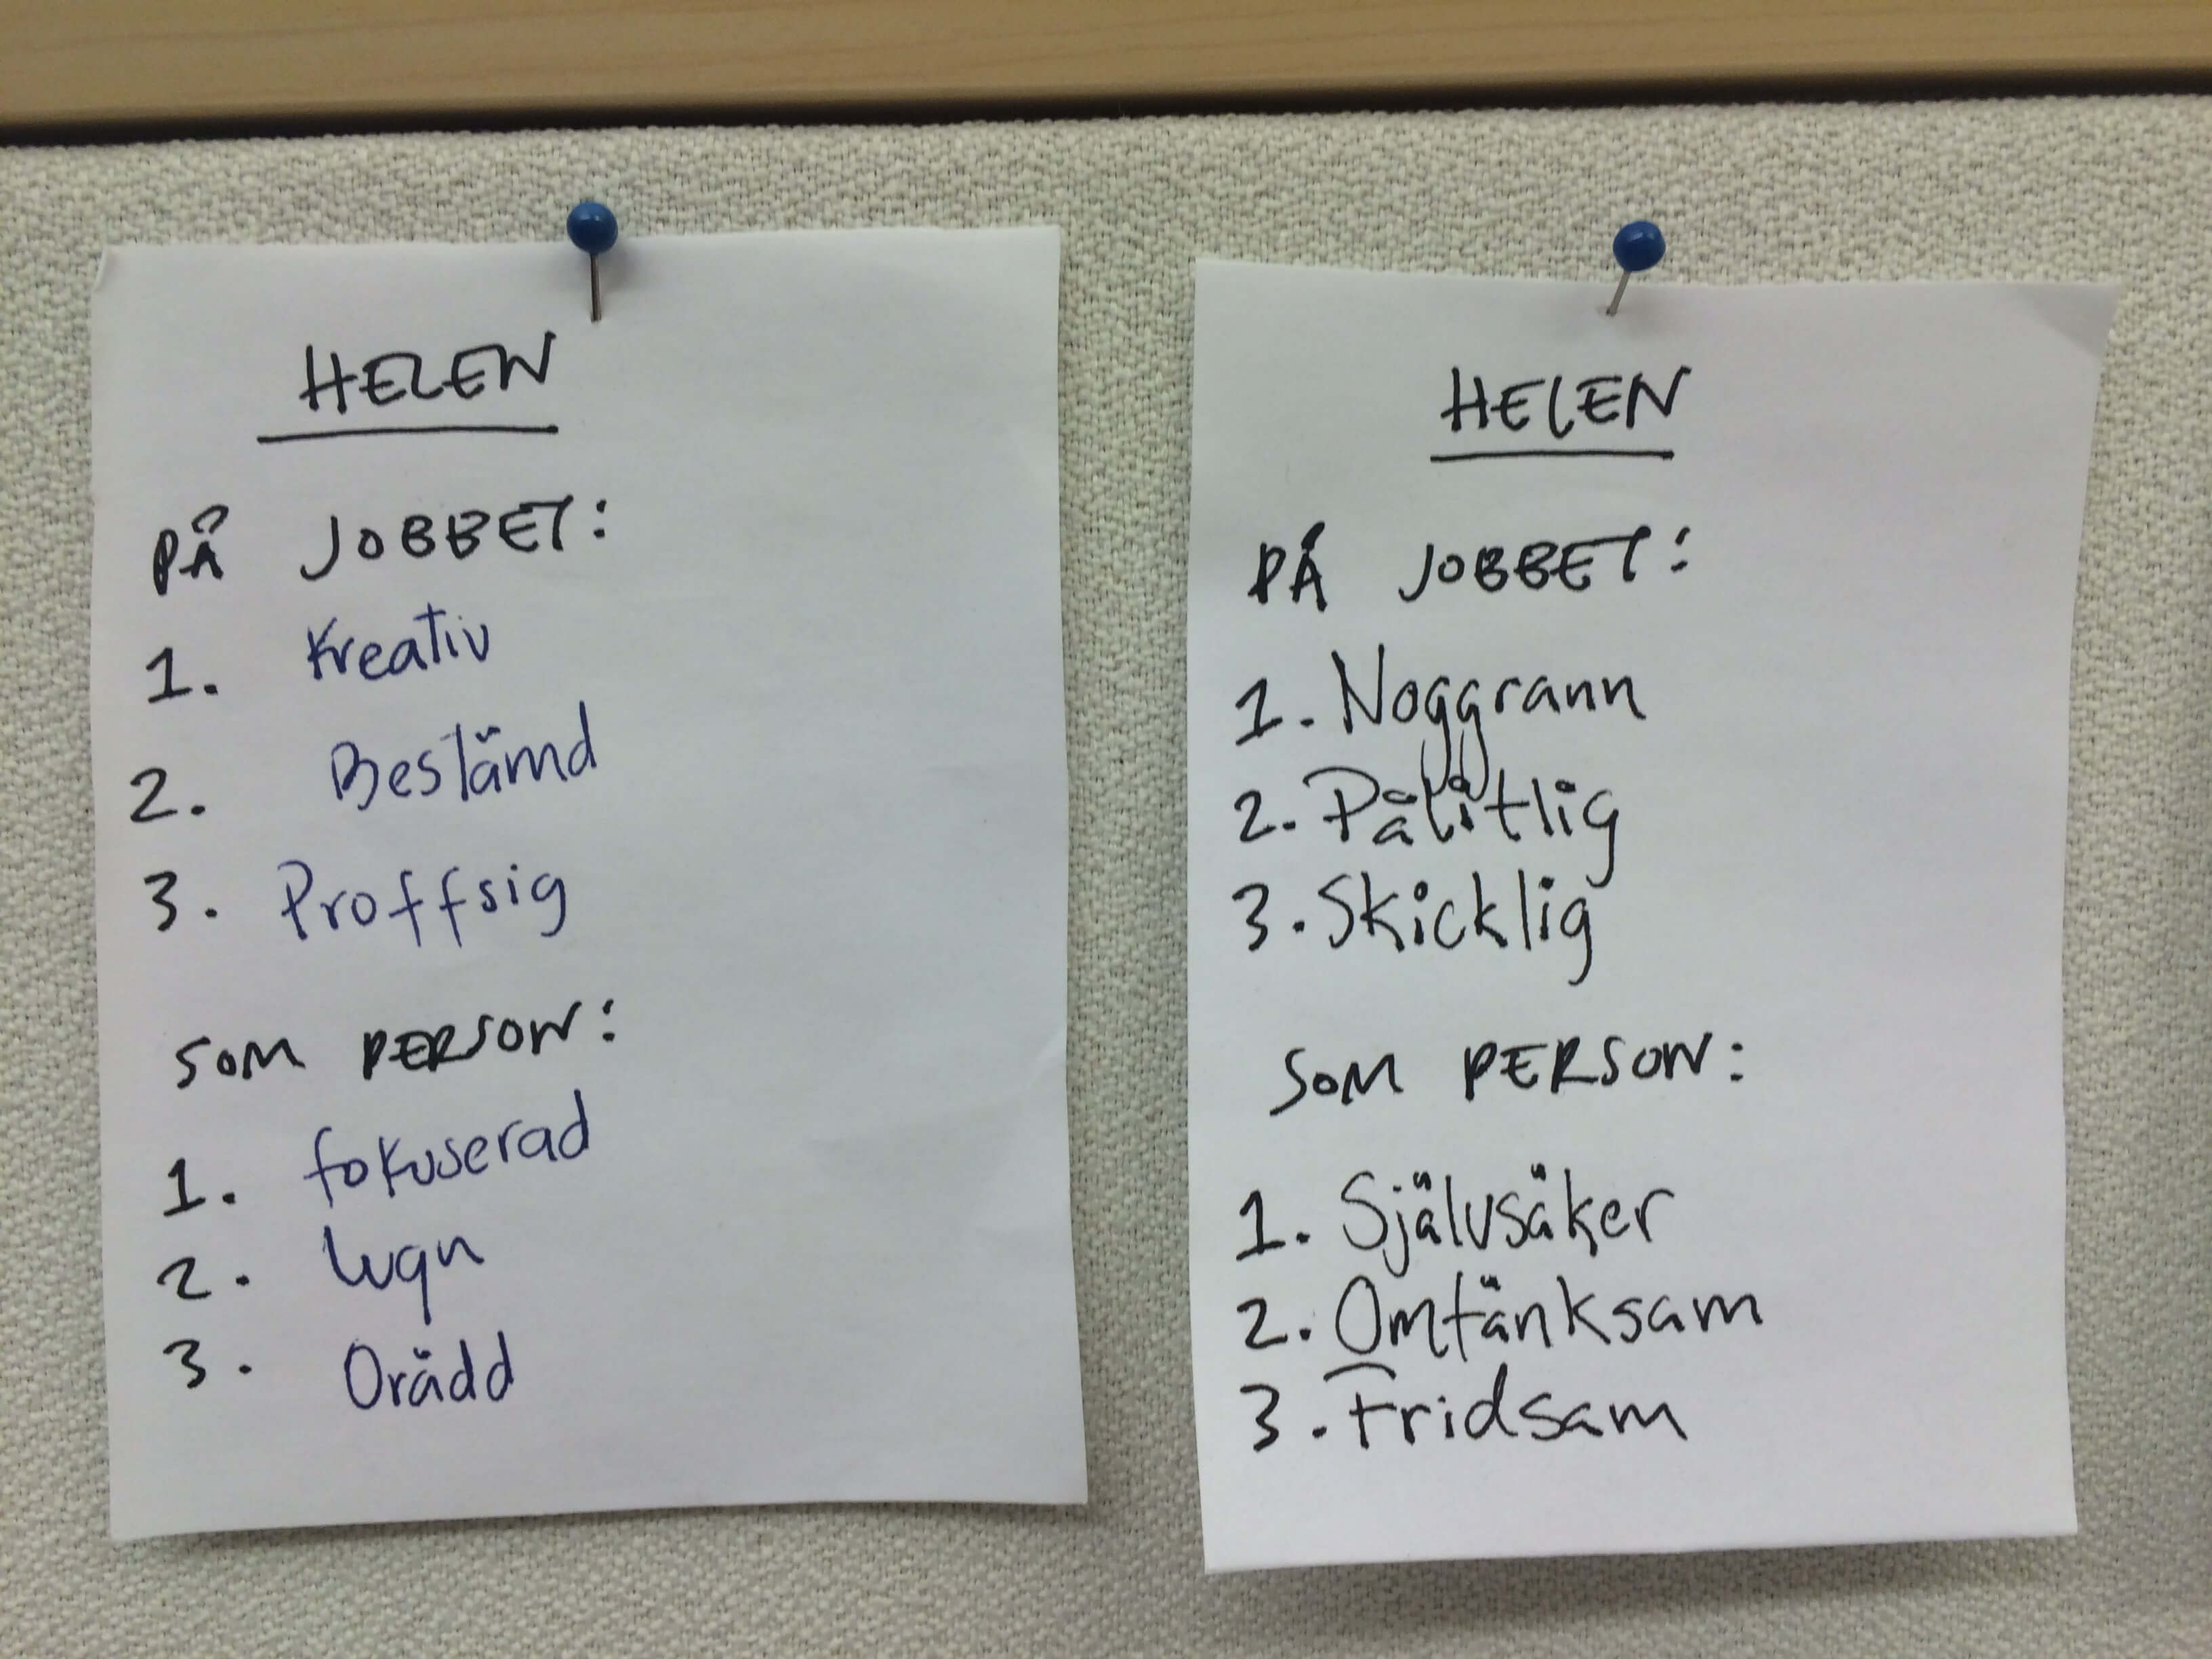 HELEN
PÅ JOBBET:
1. Kreativ
2. Bestämd
3. Proffsig
SOM PERSON:
1. fokuserad
2. lugn
3. Orädd
HELEN
PÅ JOBBET:
1. Noggrann
2. Pålitlig
3. Skicklig
SOM PERSON:
1. Självsäker
2. Omtänksam
3. Fridsam